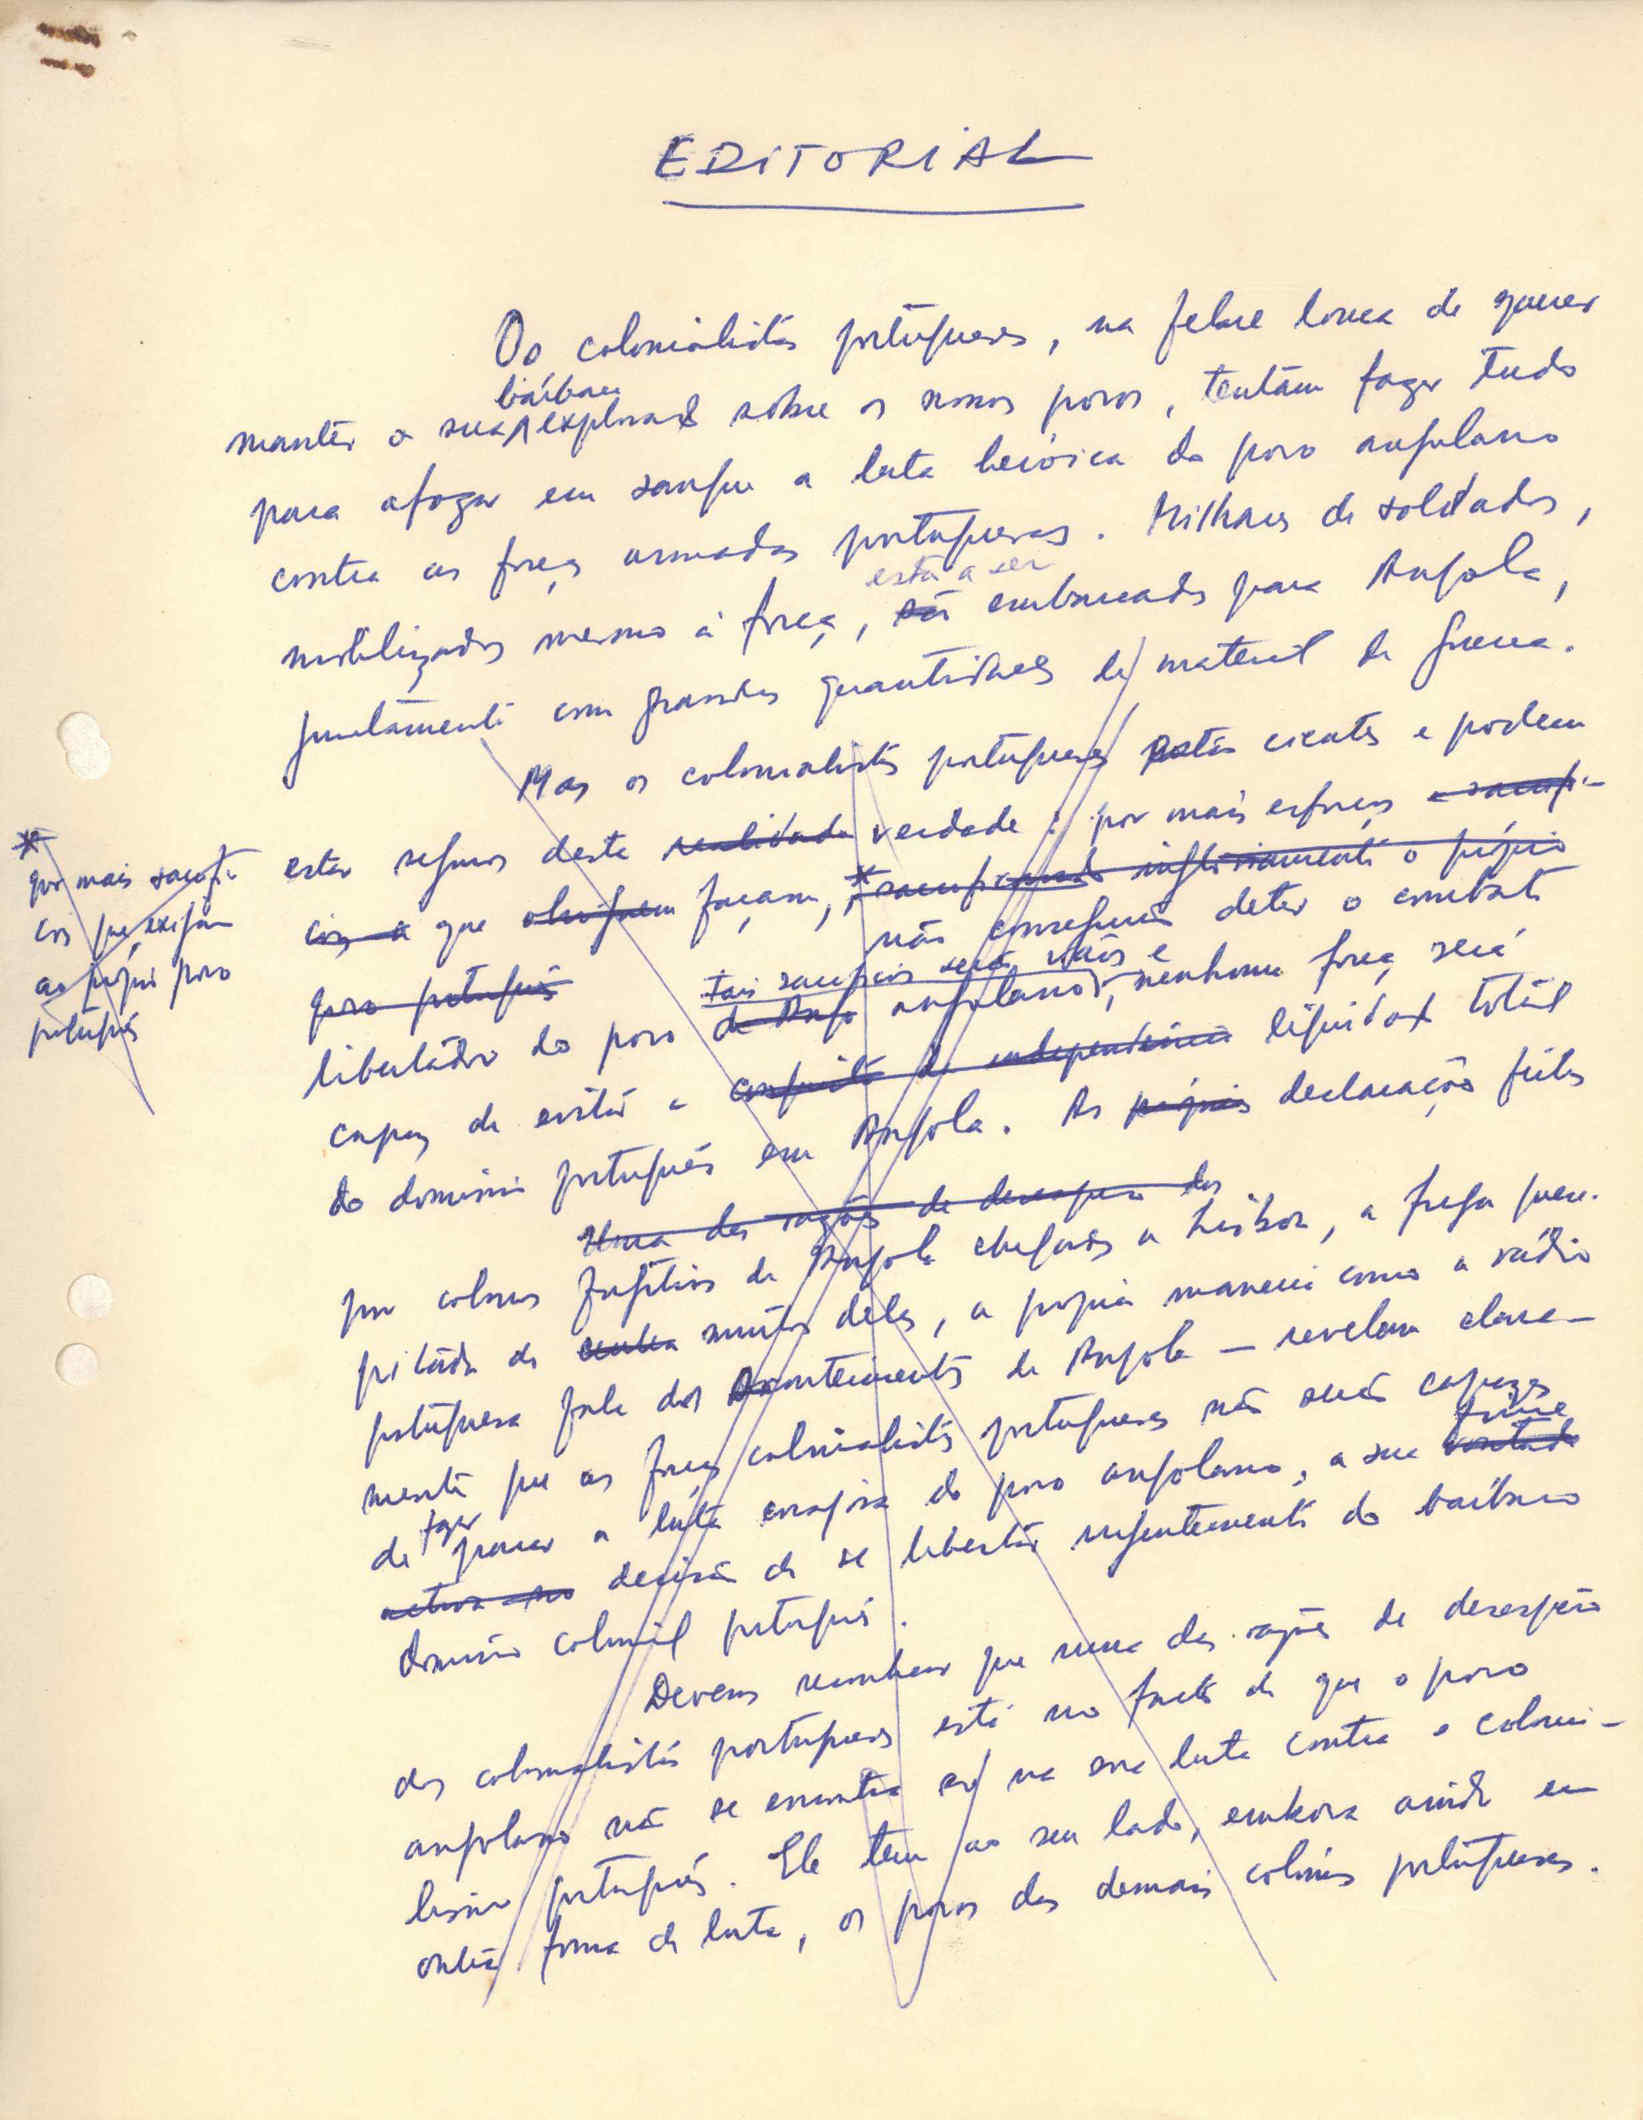 EDITORIAL
Os colonialistas portugueses, na febre louca de querer
bárbara
manter a sua exploração sobre os nossos povos, tentam fazer tudo
para afogar em sangue a luta heróica do povo angolano
contra as forças armadas portuguesas. Milhares de soldados,
está a ser
mobilizados mesmo à força, são embarcados para Angola,
juntamente com grandes quantidades de material de guerra.
Mas os colonialistas portugueses estão cientes e podem
estar seguros desta realidade verdade: por mais esforços e sacrifí-
cios a que obriguem façam, * sacrificando inglòriamente o próprio
povo português
não conseguirão deter o combate
tais sacrifícios serão vãos e
libertador do povo de Ango angolano, nenhuma força será
capaz de evitar a conquista da independência liquidação total
do domínio português em Angola. As próprias declarações feitas
Uma das razões de desespero dos
por colonos fugitivos de Angola chegados a Lisboa, a fuga preci-
pitada de outra muitos deles, a própria maneira como a rádio
portuguesa fala dos acontecimentos de Angola — revelam clara-
mente que as forças colonialistas portuguesas não serão capazes
fazer
firme
de parar a luta corajosa do povo angolano, a sua vontade
decisão de se libertar urgentemente do bárbaro
domínio colonial português.
Devemos reconhecer que uma das razões de desespero
dos colonialistas portugueses está no facto de que o povo
angolano não se encontra só na sua luta contra o coloni-
lismo português. Ele tem ao seu lado, embora ainda em
outra forma de luta, os povos das demais colónias portuguesas.
*
por mais sacrifí-
cios que exijam
ao próprio povo
português